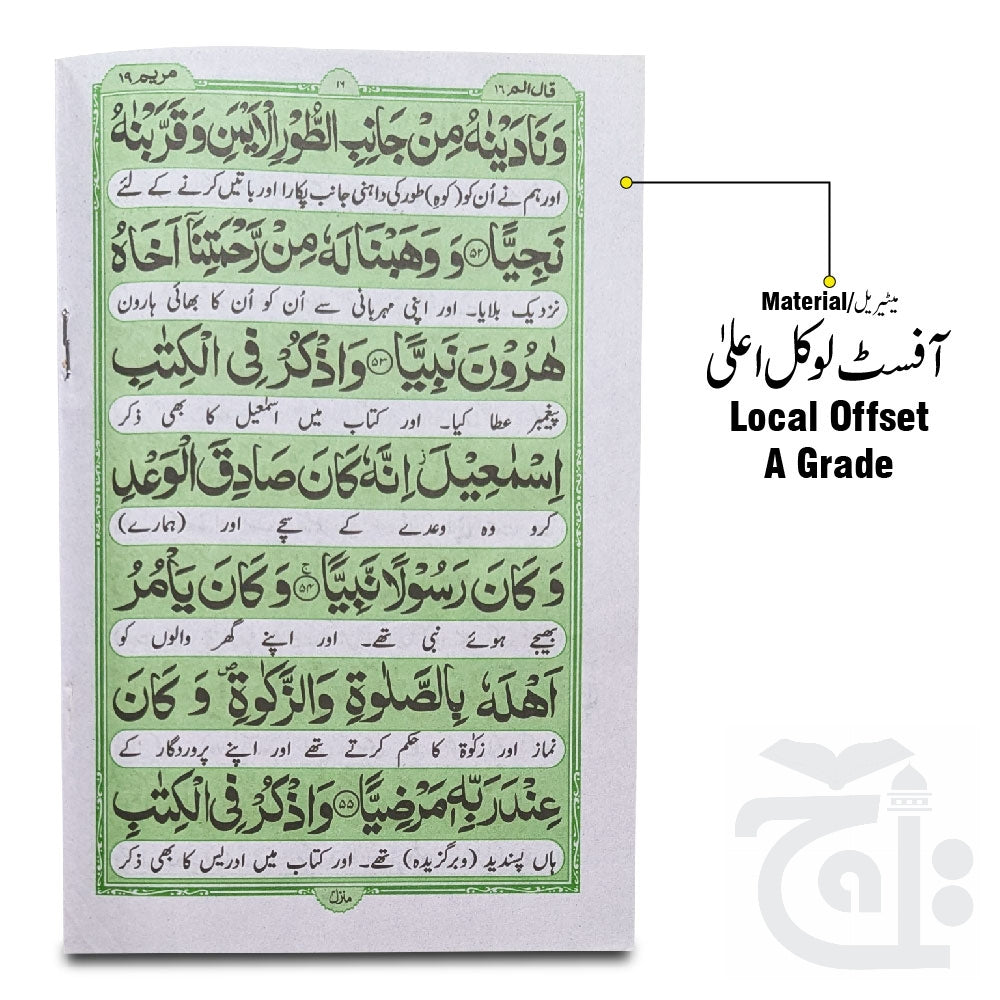 قال الم ۱۶
۱۶
مریم ۱۹
وَنَادَيْنٰهُ مِنْ جَانِبِ الطُّوْرِ الْاَيْمَنِ وَقَرَّبْنٰهُ
اور ہم نے اُن کو (کوہِ) طور کی داہنی جانب پکارا اور باتیں کرنے کے لئے
نَجِيًّا ۵۲ وَ وَهَبْنَا لَهٗ مِنْ رَّحْمَتِنَاۤ اَخَاهُ
نزدیک بلایا۔ اور اپنی مہربانی سے اُن کو اُن کا بھائی ہارون
هٰرُوْنَ نَبِيًّا ۵۳ وَاذْكُرْ فِى الْكِتٰبِ
پیغمبر عطا کیا۔ اور کتاب میں اسمٰعیل کا بھی ذکر
اِسْمٰعِيْلَ اِنَّهٗ كَانَ صَادِقَ الْوَعْدِ
کرو وہ وعدے کے سچے اور (ہمارے)
وَ كَانَ رَسُوْلًا نَّبِيًّا ۵۴ ج وَ كَانَ يَاْمُرُ
بھیجے ہوئے نبی تھے۔ اور اپنے گھر والوں کو
اَهْلَهٗ بِالصَّلٰوةِ وَالزَّكٰوةِ ص وَ كَانَ
نماز اور زکوٰۃ کا حکم کرتے تھے اور اپنے پروردگار کے
عِنْدَ رَبِّهٖ مَرْضِيًّا ۵۵ وَاذْكُرْ فِى الْكِتٰبِ
ہاں پسندید (وبرگزیدہ) تھے۔ اور کتاب میں ادریس کا بھی ذکر
Material/میٹیریل
آفسٹ لوکل اعلیٰ
Local Offset
A Grade